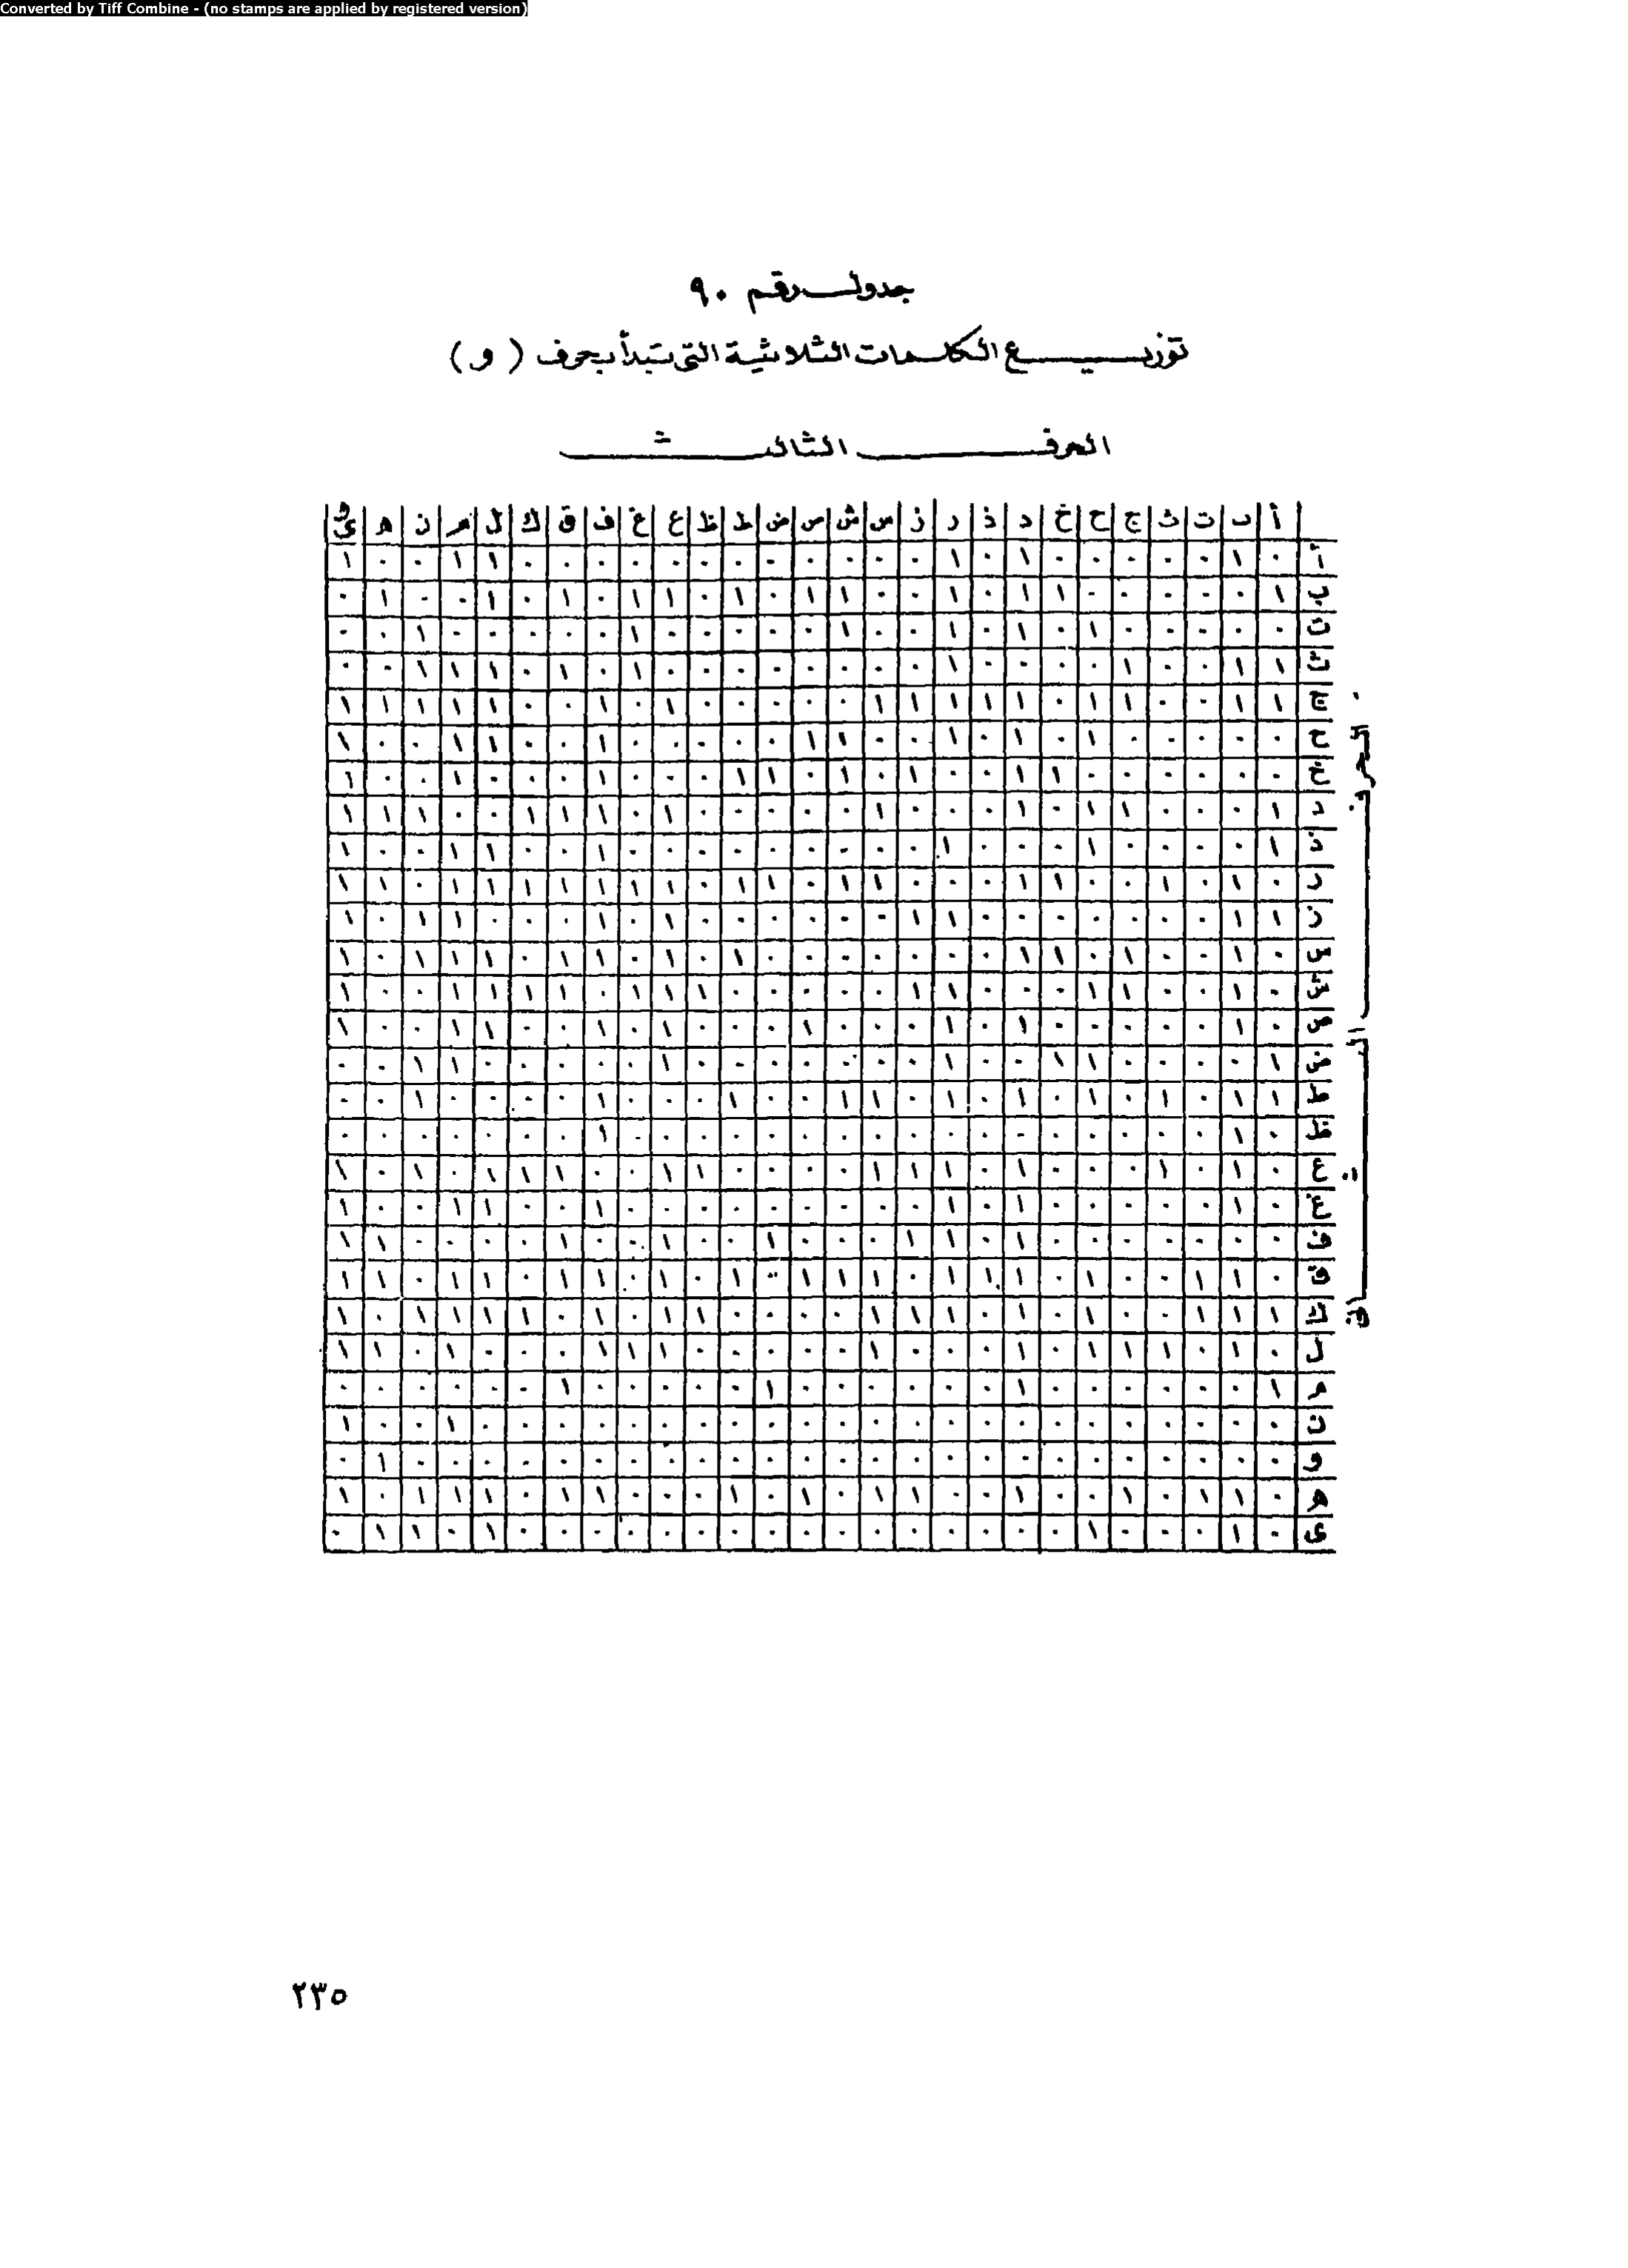 جدول رقم ٩٠
توزيع الكلمات الثلاثية التى تبدأ بحرف ( و )
الحرف الثالث
أ ب ت ث ج ح خ د ذ ر ز س ش ص ض ط ظ ع غ ف ق ك ل م ن ه وى
الحرف الثانى
أ ٠ ١ ٠ ٠ ٠ ٠ ٠ ١ ٠ ١ ٠ ٠ ٠ ٠ ٠ ٠ ٠ ٠ ٠ ٠ ٠ ٠ ١ ١ ٠ ٠ ١
ب ١ ٠ ٠ ٠ ٠ ٠ ١ ١ ٠ ١ ٠ ٠ ١ ١ ٠ ١ ٠ ١ ١ ٠ ١ ٠ ١ ٠ ٠ ١ ٠
ت ٠ ٠ ٠ ٠ ٠ ١ ٠ ١ ٠ ١ ٠ ٠ ١ ٠ ٠ ٠ ٠ ٠ ١ ٠ ٠ ٠ ٠ ٠ ١ ٠ ٠
ث ١ ١ ٠ ٠ ١ ٠ ٠ ٠ ٠ ١ ٠ ٠ ٠ ٠ ٠ ٠ ٠ ٠ ١ ٠ ١ ٠ ١ ١ ١ ٠ ٠
ج ١ ١ ٠ ٠ ١ ١ ٠ ١ ١ ١ ١ ١ ٠ ٠ ٠ ٠ ٠ ١ ٠ ١ ٠ ٠ ١ ١ ١ ١ ١
ح ٠ ٠ ٠ ٠ ٠ ١ ٠ ١ ٠ ١ ٠ ٠ ١ ١ ٠ ٠ ٠ ٠ ٠ ١ ٠ ٠ ١ ١ ٠ ٠ ١
خ ٠ ٠ ٠ ٠ ٠ ٠ ١ ١ ٠ ٠ ١ ٠ ١ ٠ ١ ١ ٠ ٠ ٠ ١ ٠ ٠ ٠ ١ ٠ ٠ ١
د ١ ٠ ٠ ٠ ١ ١ ٠ ١ ٠ ٠ ٠ ١ ٠ ٠ ٠ ٠ ٠ ١ ٠ ١ ١ ١ ٠ ٠ ١ ١ ١
ذ ١ ٠ ٠ ٠ ٠ ١ ٠ ٠ ٠ ١ ٠ ٠ ٠ ٠ ٠ ٠ ٠ ٠ ٠ ١ ٠ ٠ ١ ١ ٠ ٠ ١
ر ٠ ١ ٠ ١ ٠ ٠ ١ ١ ٠ ٠ ٠ ١ ١ ٠ ١ ١ ٠ ١ ١ ١ ١ ١ ١ ١ ٠ ١ ١
ز ١ ١ ٠ ٠ ٠ ٠ ٠ ٠ ٠ ١ ١ ٠ ٠ ٠ ٠ ٠ ٠ ١ ٠ ١ ٠ ٠ ٠ ١ ١ ٠ ١
س ٠ ١ ٠ ٠ ١ ٠ ١ ١ ٠ ٠ ٠ ٠ ٠ ٠ ٠ ١ ٠ ١ ٠ ١ ١ ٠ ١ ١ ١ ٠ ١
ش ٠ ١ ٠ ٠ ١ ١ ٠ ٠ ٠ ١ ١ ٠ ٠ ٠ ٠ ٠ ١ ١ ١ ٠ ١ ١ ١ ١ ٠ ٠ ١
ص ٠ ١ ٠ ٠ ٠ ٠ ٠ ١ ٠ ١ ٠ ٠ ٠ ١ ٠ ٠ ٠ ١ ٠ ١ ٠ ٠ ١ ١ ٠ ٠ ١
ض ١ ٠ ٠ ٠ ٠ ١ ١ ٠ ٠ ١ ٠ ٠ ٠ ٠ ٠ ٠ ٠ ١ ٠ ٠ ٠ ٠ ٠ ١ ١ ٠ ٠
ط ١ ١ ٠ ١ ٠ ١ ٠ ١ ٠ ١ ٠ ١ ١ ٠ ٠ ١ ٠ ٠ ٠ ١ ٠ ٠ ٠ ٠ ١ ٠ ٠
ظ ٠ ١ ٠ ٠ ٠ ٠ ٠ ٠ ٠ ٠ ٠ ٠ ٠ ٠ ٠ ٠ ٠ ٠ ٠ ١ ٠ ٠ ٠ ٠ ٠ ٠ ٠
ع ٠ ١ ٠ ١ ٠ ٠ ٠ ١ ٠ ١ ١ ١ ٠ ٠ ٠ ٠ ١ ١ ٠ ٠ ١ ١ ١ ٠ ١ ٠ ١
غ ٠ ١ ٠ ٠ ٠ ٠ ٠ ١ ٠ ١ ٠ ٠ ٠ ٠ ٠ ٠ ٠ ٠ ٠ ١ ٠ ٠ ١ ١ ٠ ٠ ١
ف ٠ ٠ ٠ ٠ ٠ ٠ ٠ ١ ٠ ١ ١ ٠ ٠ ٠ ١ ٠ ٠ ١ ٠ ٠ ١ ٠ ٠ ٠ ٠ ١ ١
ق ٠ ١ ١ ٠ ٠ ١ ٠ ١ ١ ١ ٠ ١ ١ ١ ٠ ١ ٠ ١ ٠ ١ ١ ٠ ١ ١ ٠ ١ ١
ك ١ ١ ١ ٠ ٠ ١ ٠ ١ ٠ ١ ١ ١ ٠ ٠ ٠ ٠ ١ ١ ٠ ١ ٠ ١ ١ ١ ١ ٠ ١
ل ٠ ١ ٠ ١ ١ ١ ٠ ١ ٠ ٠ ٠ ١ ٠ ٠ ٠ ٠ ٠ ١ ١ ١ ٠ ٠ ٠ ١ ٠ ١ ١
م ١ ٠ ٠ ٠ ٠ ٠ ٠ ١ ٠ ٠ ٠ ٠ ٠ ٠ ١ ٠ ٠ ٠ ٠ ٠ ١ ٠ ٠ ٠ ٠ ٠ ٠
ن ٠ ٠ ٠ ٠ ٠ ٠ ٠ ٠ ٠ ٠ ٠ ٠ ٠ ٠ ٠ ٠ ٠ ٠ ٠ ٠ ٠ ٠ ٠ ١ ٠ ٠ ١
و ٠ ٠ ٠ ٠ ٠ ٠ ٠ ٠ ٠ ٠ ٠ ٠ ٠ ٠ ٠ ٠ ٠ ٠ ٠ ٠ ٠ ٠ ٠ ٠ ٠ ١ ٠
ه ٠ ١ ١ ٠ ١ ٠ ٠ ١ ٠ ٠ ١ ١ ٠ ١ ٠ ١ ٠ ٠ ٠ ١ ١ ٠ ١ ١ ١ ٠ ١
ى ٠ ١ ٠ ٠ ٠ ١ ٠ ٠ ٠ ٠ ٠ ٠ ٠ ٠ ٠ ٠ ٠ ٠ ٠ ٠ ٠ ٠ ١ ٠ ١ ١ ٠
٢٣٥
Converted by Tiff Combine - (no stamps are applied by registered version)